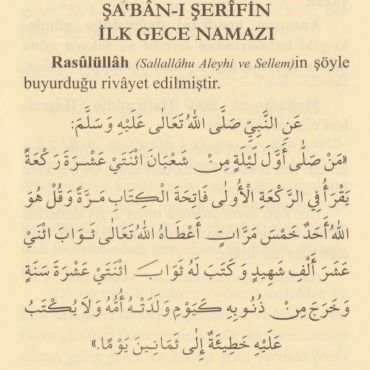 ŞA‘BÂN-I ŞERÎFİN
İLK GECE NAMAZI
Rasûlüllâh (Sallallâhu Aleyhi ve Sellem)in şöyle
buyurduğu rivâyet edilmiştir.
عَنِ النَّبِيِّ صَلَّى اللهُ تَعَالَى عَلَيْهِ وَسَلَّمَ:
«مَنْ صَلَّى أَوَّلَ لَيْلَةٍ مِنْ شَعْبَانَ اثْنَتَيْ عَشْرَةَ رَكْعَةً
يَقْرَأُ فِي الرَّكْعَةِ الْأُولَى فَاتِحَةَ الْكِتَابِ مَرَّةً وَقُلْ هُوَ
اللهُ أَحَدٌ خَمْسَ مَرَّاتٍ أَعْطَاهُ اللهُ تَعَالَى ثَوَابَ اثْنَيْ
عَشَرَ أَلْفِ شَهِيدٍ وَكَتَبَ لَهُ ثَوَابَ اثْنَتَيْ عَشْرَةَ سَنَةً
وَخَرَجَ مِنْ ذُنُوبِهِ كَيَوْمٍ وَلَدَتْهُ أُمُّهُ وَلَا يُكْتَبُ
عَلَيْهِ خَطِيئَةٌ إِلَى ثَمَانِينَ يَوْمًا.»